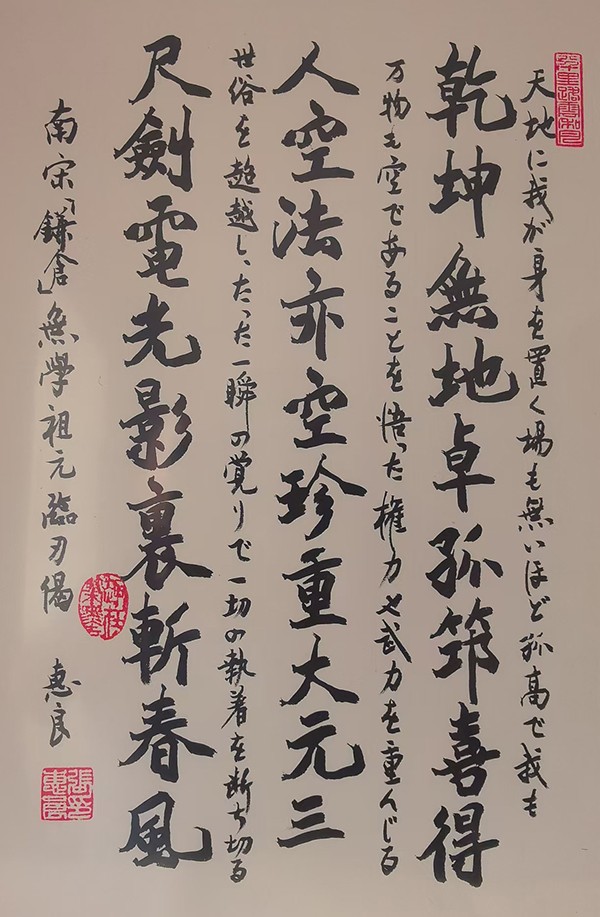 天地に我が身を置く場も無いほど孤高で我も
乾坤無地卓孤筇喜得
万物も空であることを悟った権力や武力を重んじる
人空法亦空珍重大元三
世俗を超越し、たった一瞬の覚りで一切の執着を断ち切る
尺劍電光影裏斬春風
南宋「鎌倉」無學祖元臨刃偈 惠良